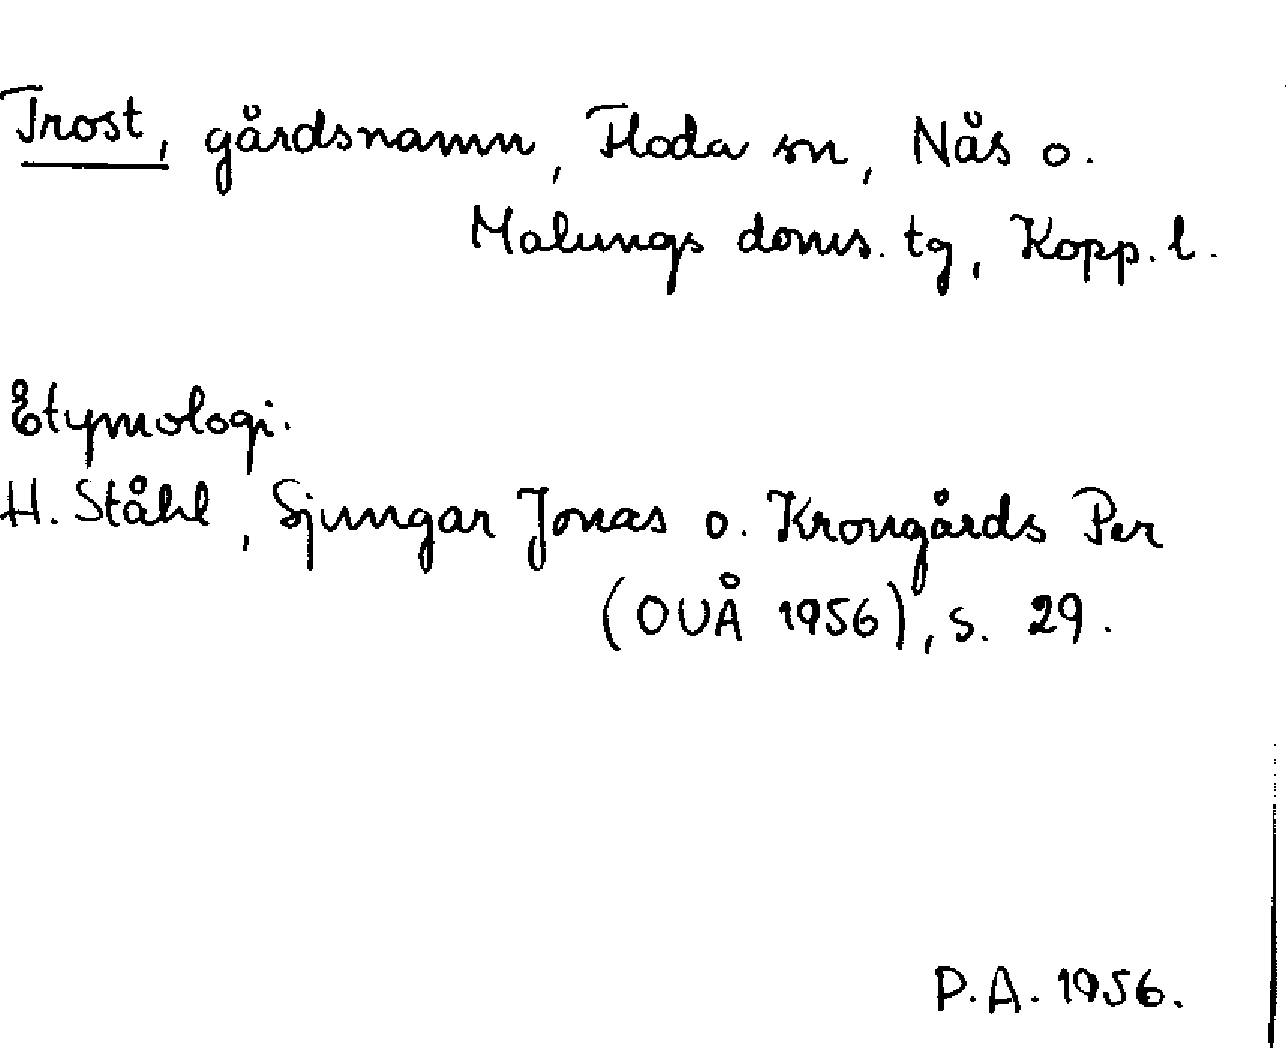 Trost, gårdsnamn, Floda sn, Nås o.
Malungs doms. tg, Kopp. l.
Etymologi.
H. Ståhl, Sjungar Jonas o. Krongårds Per
(OUÅ 1956), s. 29.
P.A. 1956.